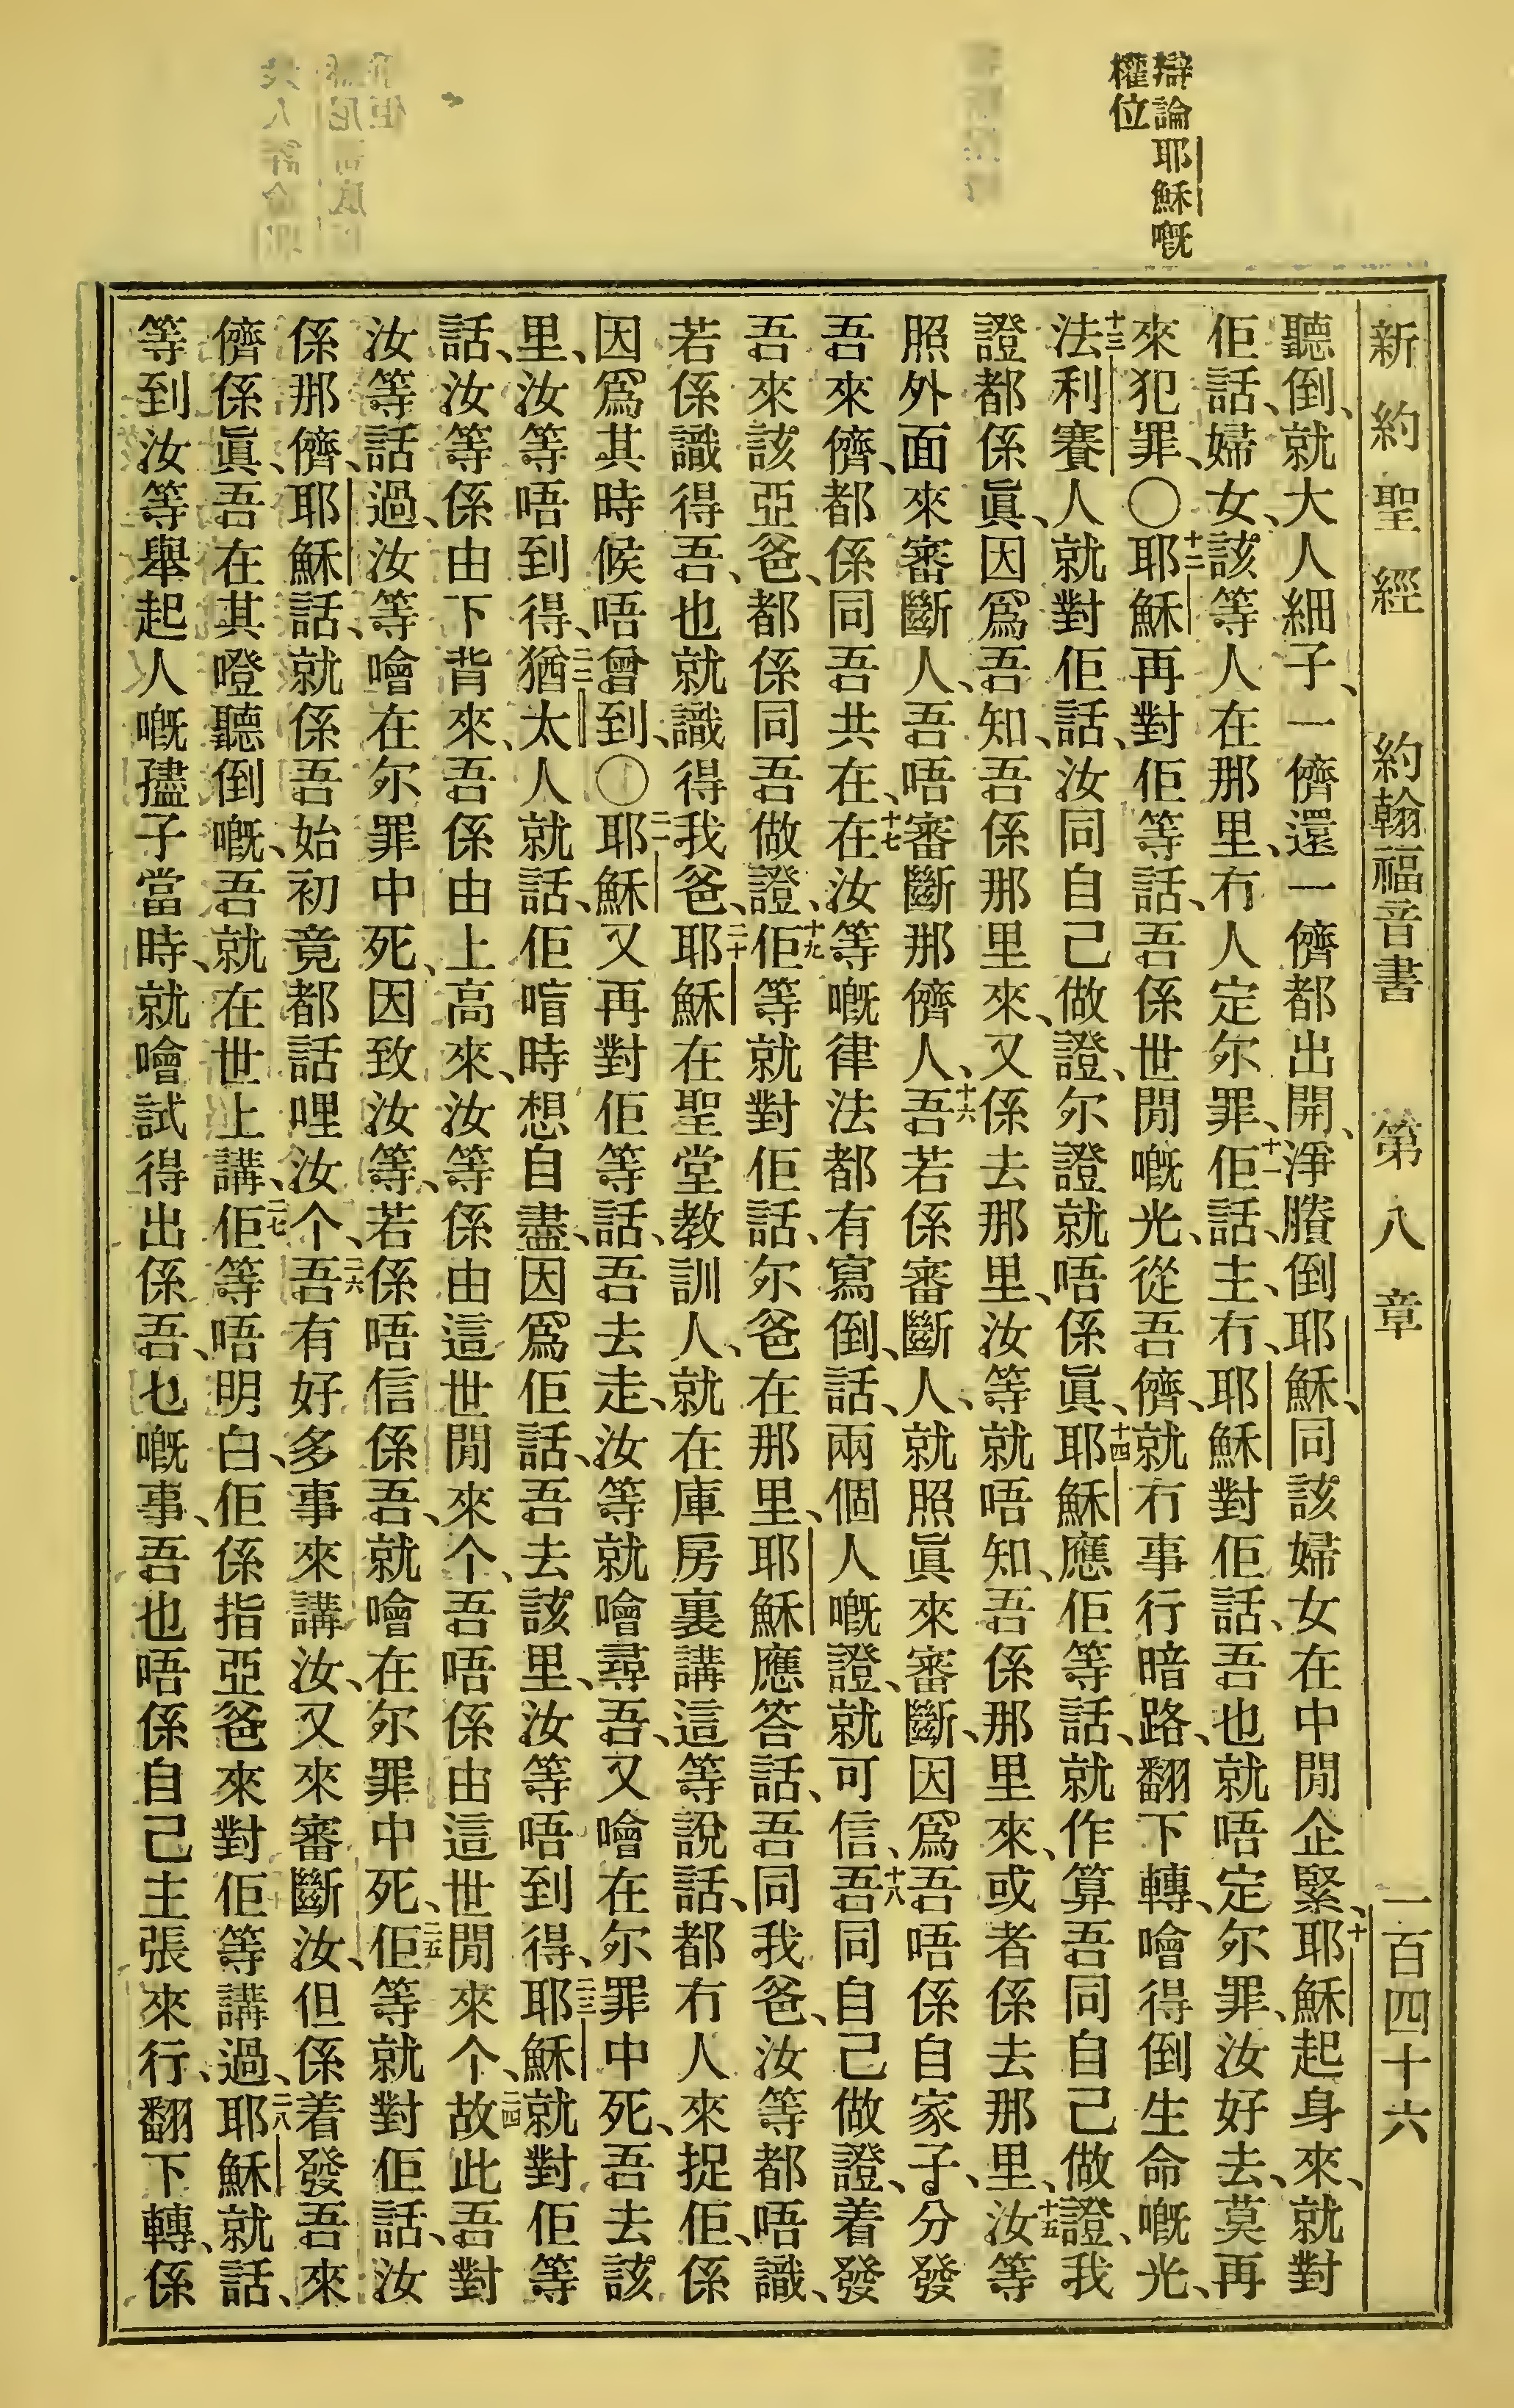 辯論耶穌嘅
權位
新約聖經 約翰福音書 第八章 一百四十六
聽倒、就大人細子、一儕還一儕都出開、淨賸倒耶穌、同該婦女在中閒企緊、十耶穌起身來、就對
佢話、婦女、該等人在那里、冇人定尔罪、十一佢話、主、冇、耶穌對佢話、吾也就唔定尔罪、汝好去、莫再
來犯罪、〇十二耶穌再對佢等話、吾係世閒嘅光、從吾儕、就冇事行暗路、翻下轉、噲得倒生命嘅光、
十三法利賽人就對佢話、汝同自己做證、尔證就唔係眞、十四耶穌應佢等話、就作算吾同自己做證、我
證都係眞、因爲吾知、吾係那里來、又係去那里、汝等就唔知、吾係那里來、或者係去那里、十五汝等
照外面來審斷人、吾唔審斷那儕人、十六吾若係審斷人、就照眞來審斷、因爲吾唔係自家子、分發
吾來儕、都係同吾共在、十七在汝等嘅律法都有寫倒、話、兩個人嘅證、就可信、十八吾同自己做證、着發
吾來該亞爸、都係同吾做證、十九佢等就對佢話、尔爸在那里、耶穌應答話、吾同我爸、汝等都唔識、
若係識得吾、也就識得我爸、二十耶穌在聖堂教訓人、就在庫房裏講這等說話、都冇人來捉佢、係
因爲其時候唔曾到、〇二一耶穌又再對佢等話、吾去走、汝等就噲尋吾、又噲在尔罪中死、吾去該
里、汝等唔到得、二二猶太人就話、佢喑時想自盡、因爲佢話、吾去該里、汝等唔到得、二三耶穌就對佢等
話、汝等係由下背來、吾係由上高來、汝等係由這世閒來个、吾唔係由這世閒來个、二四故此吾對
汝等話過、汝等噲在尔罪中死、因致汝等、若係唔信係吾、就噲在尔罪中死、二五佢等就對佢話、汝
係那儕、耶穌話、就係吾始初竟都話哩汝个、二六吾有好多事來講汝、又來審斷汝、但係着發吾來
儕係眞、吾在其嶝聽倒嘅、吾就在世上講、二七佢等唔明白、佢係指亞爸來對佢等講過、二八耶穌就話、
等到汝等舉起人嘅孻子當時、就噲試得出係吾、乜嘅事、吾也唔係自己主張來行、翻下轉、係